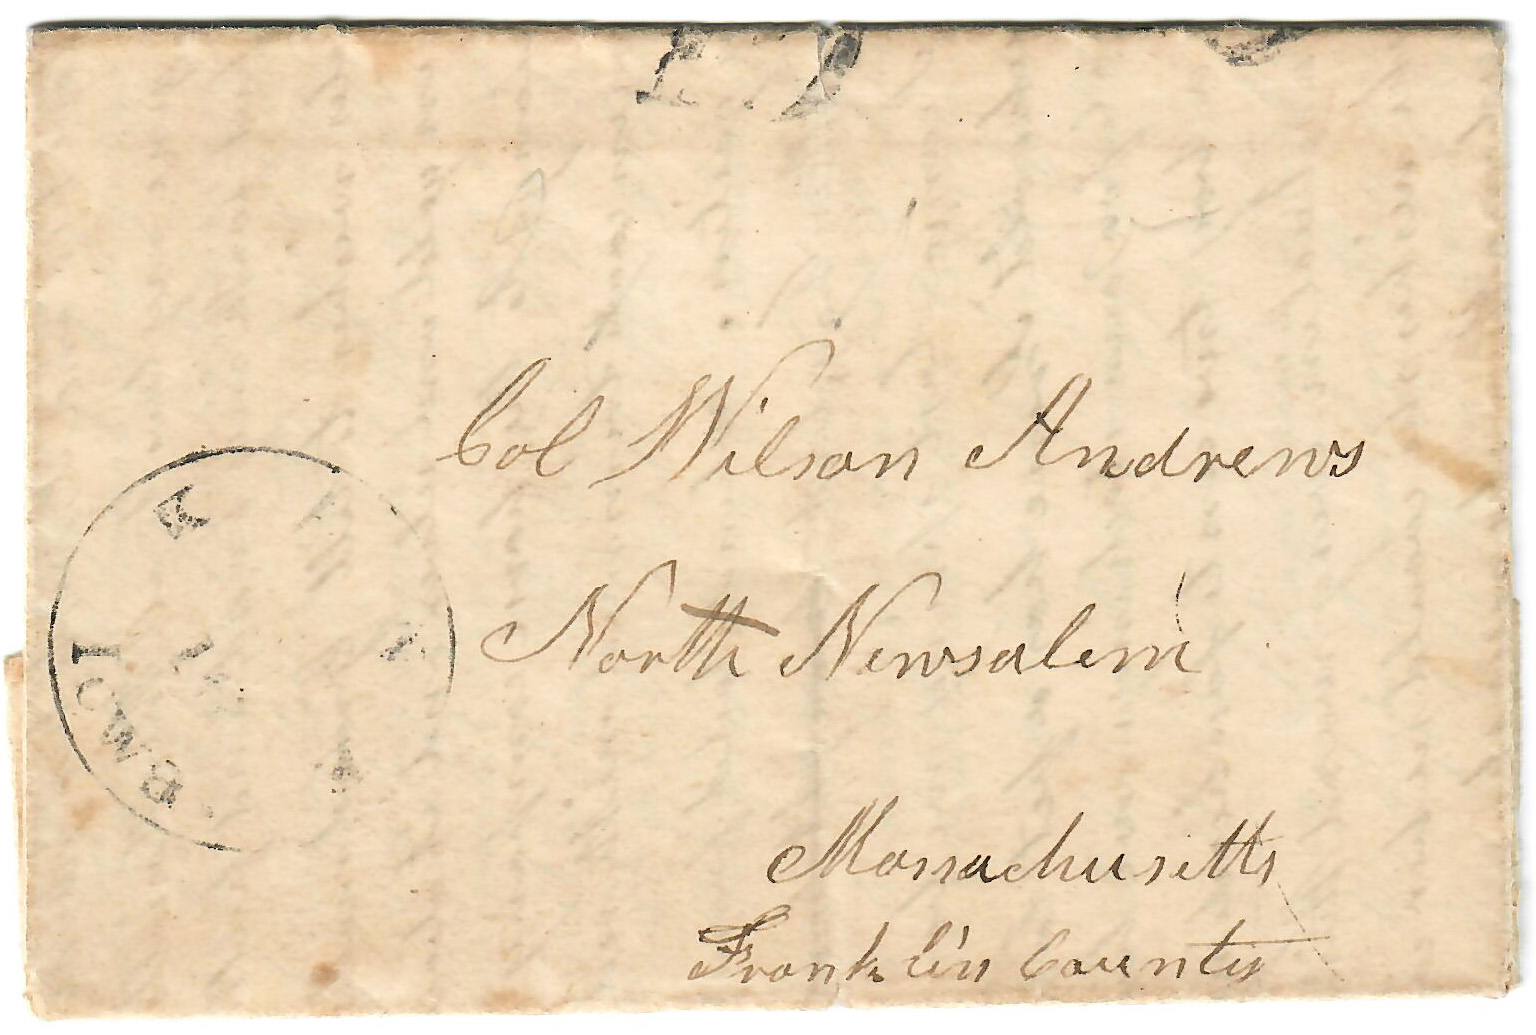 Col Wilson Andrews
North Newsalem
Massachusetts
Franklin County